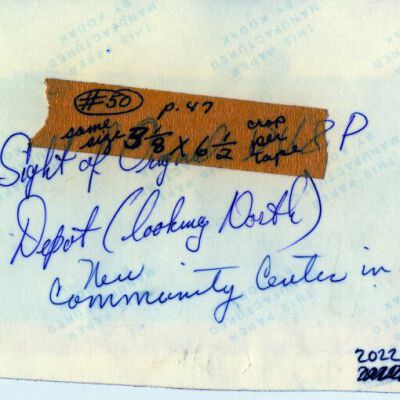 #50 p. 47
same size 3 1/8 x 6 1/2 crop per tape
Sight of P
Depot (looking North)
New
Community Center in
2022
THIS PAPER
MANUFACTURED
BY KODAK